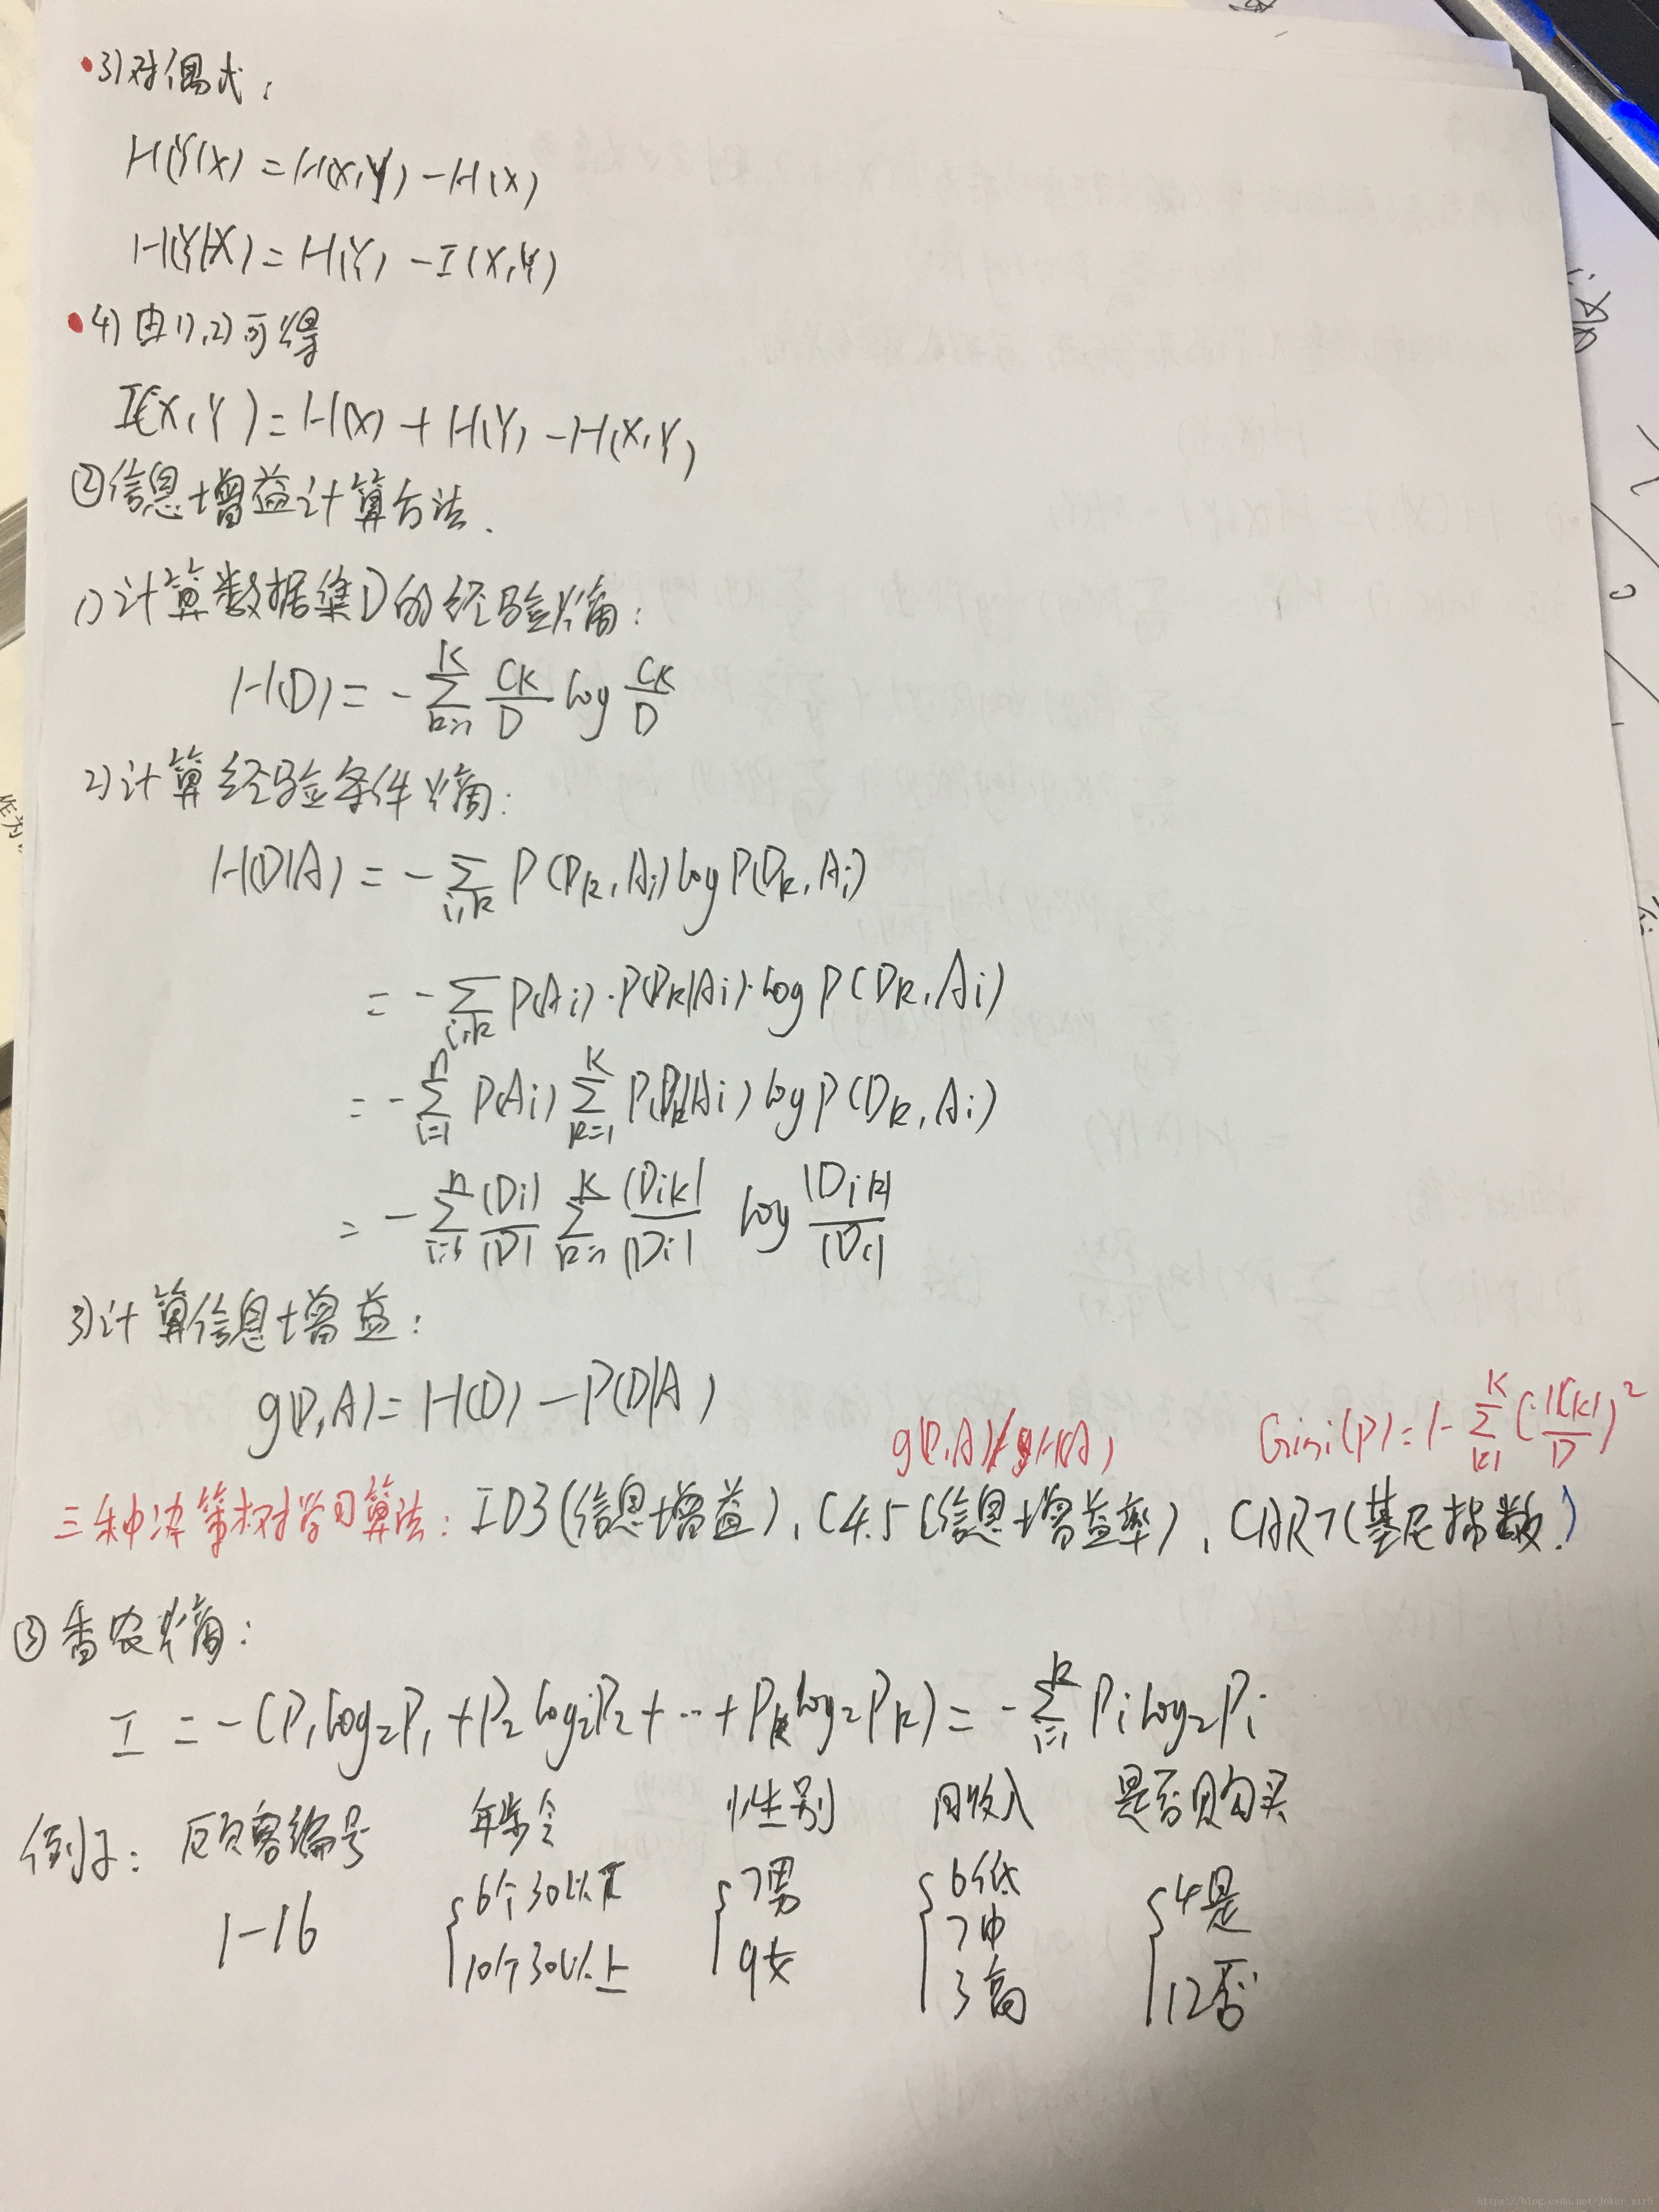 3)对偶式:
H(Y|X) = H(X,Y) - H(X)
H(Y|X) = H(Y) - I(X,Y)
4)由1),2)可得
I(X,Y) = H(X) + H(Y) - H(X,Y)
②信息增益计算方法.
1)计算数据集D的经验熵:
H(D) = - ∑_{k=1}^{K} CK/D log CK/D
2)计算经验条件熵:
H(D|A) = - ∑_{i,k} P(Dk,Ai) log P(Dk,Ai)
= - ∑_{i,k} P(Ai)·P(Dk|Ai)·log P(Dk,Ai)
= - ∑_{i=1}^{n} P(Ai) ∑_{k=1}^{K} P(Dk|Ai) log P(Dk,Ai)
= - ∑_{i=1}^{n} |Di|/|D| ∑_{k=1}^{K} |Dik|/|Di| log |Dik|/|Di|
3)计算信息增益:
g(D,A) = H(D) - P(D|A)
g(D,A)/H(A) Gini(P) = 1 - ∑_{k=1}^{K} (|Ck|/D)²
三种决策树学习算法: ID3(信息增益), C4.5(信息增益率), CART(基尼指数)
③香农熵:
I = -(P₁log₂P₁ + P₂log₂P₂ + ··· + Pklog₂Pk) = - ∑_{i=1}^{k} Pi log₂Pi
例子: 顾客编号 年龄 性别 月收入 是否购买
1-16 {6个30以下 {7男 {6低 {4是
7中
10个30以上 9女 3高 12否
https://blog.csdn.net/Joker_sir5